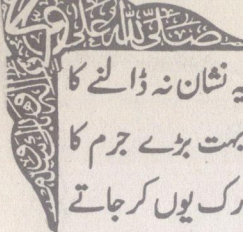 صلی اللہ علی
یہ نشان نہ ڈالنے کا
بہت بڑے جرم کا
رک یوں کر جاتے